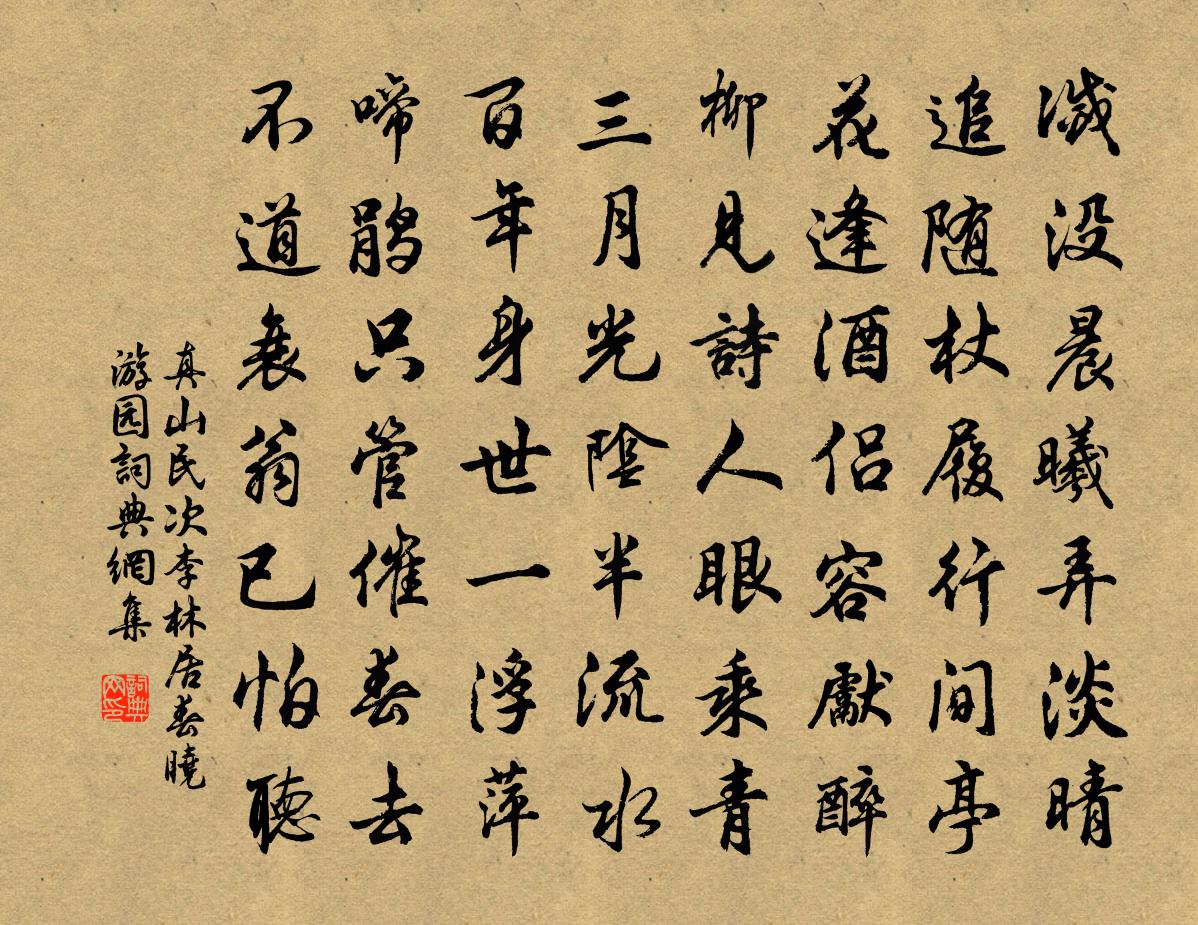 滅没晨曦弄淡晴
追随杖履行间亭
花逢酒侣容獻醉
柳見詩人眼乘青
三月光陰半流水
百年身世一浮萍
啼鹃只管催春去
不道衰翁已怕聽
真山民次李林居春曉
游园詞典網集
詞典网印